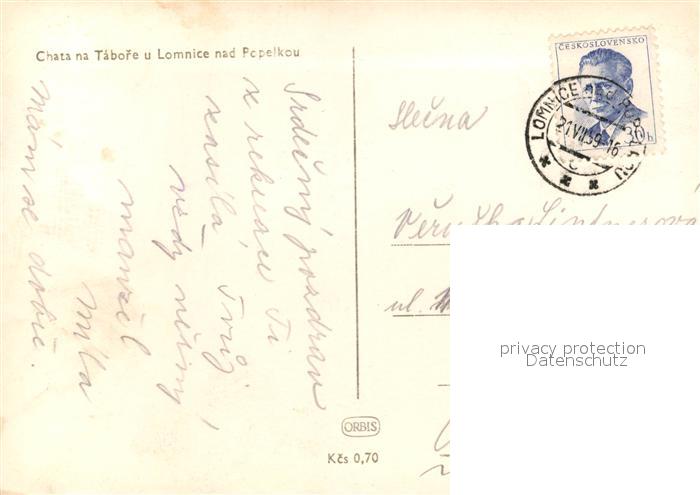 Chata na Táboře u Lomnice nad Popelkou
Srdečný pozdrav
z rekreace Ti
zasílá Tvůj
vždy věrný
manžel
Míla
Mám se dobře.
ČESKOSLOVENSKO
30 h
LOMNICE NAD POPELKOU
21.VII.59-16
Slečna
Věruška Lindnerova
ul.
privacy protection
Datenschutz
ORBIS
Kčs 0,70